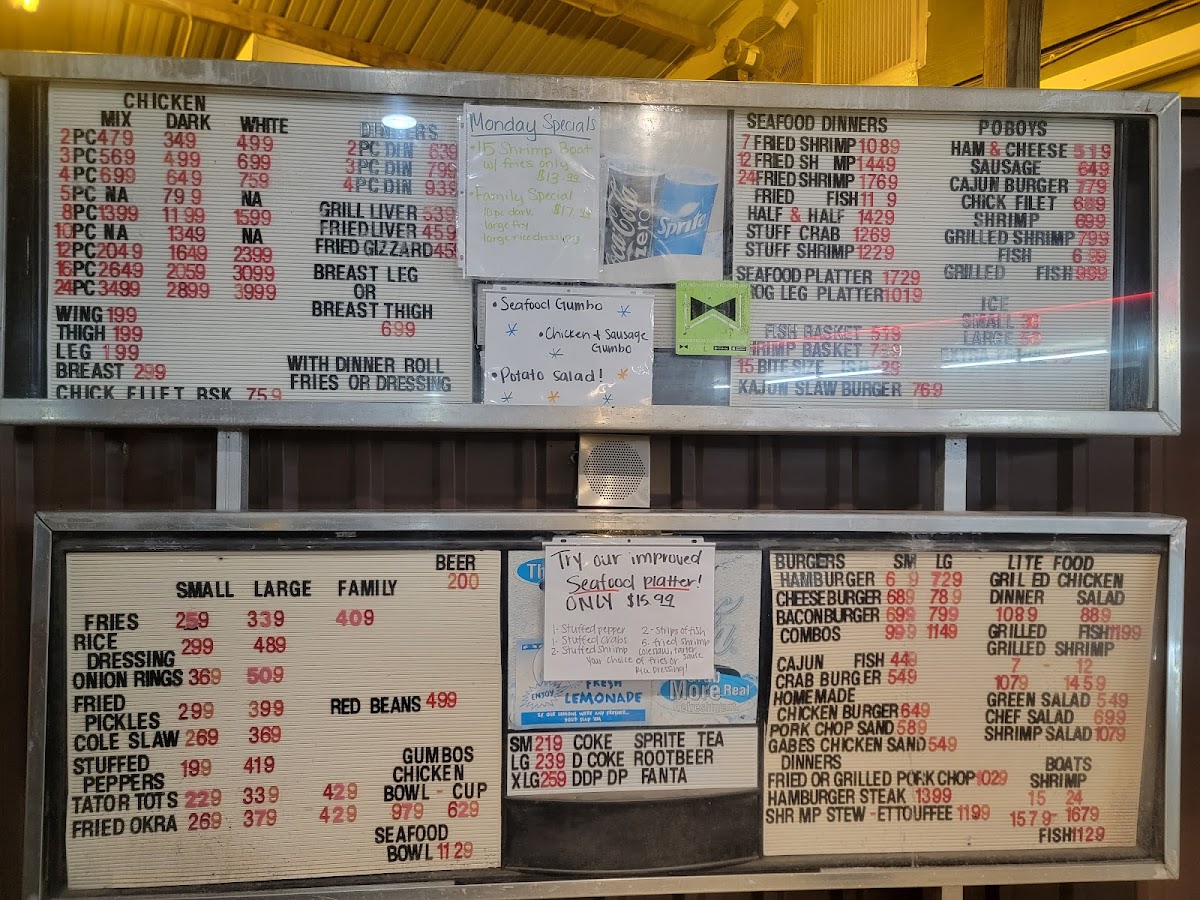 CHICKEN
MIX DARK WHITE
2 PC 479 349 499
3 PC 569 499 699
4 PC 699 649 759
5 PC NA 799 NA
8 PC 1399 1199 1599
10 PC NA 1349 NA
12 PC 2049 1649 2399
16 PC 2649 2059 3099
24 PC 3499 2899 3999
WING 199
THIGH 199
LEG 199
BREAST 299
CHICK FILET BSK 759
DINNERS
2 PC DIN 639
3 PC DIN 799
4 PC DIN 939
GRILL LIVER 539
FRIED LIVER 459
FRIED GIZZARD 45
BREAST LEG
OR
BREAST THIGH
699
WITH DINNER ROLL
FRIES OR DRESSING
Monday Specials
•15 Shrimp Boat
w/ fries only
$13.99
•Family Special
10 pc dark
large fry
large rice dressing
Coca-Cola
ZERO
Sprite
•Seafood Gumbo
•Chicken + Sausage
Gumbo
•Potato Salad!
SEAFOOD DINNERS
7 FRIED SHRIMP 1089
12 FRIED SH MP 1449
24 FRIED SHRIMP 1769
FRIED FISH 11 9
HALF & HALF 1429
STUFF CRAB 1269
STUFF SHRIMP 1229
SEAFOOD PLATTER 1729
OG LEG PLATTER 1019
FISH BASKET
HRIMP BASKET
15 BITE SIZE
KAJUN SLAW BURGER 769
POBOYS
HAM & CHEESE 519
SAUSAGE 649
CAJUN BURGER 779
CHICK FILET 689
SHRIMP 699
GRILLED SHRIMP 799
FISH 6 99
GRILLED FISH 999
ICE
SMALL
LARGE
BEER
200
SMALL LARGE FAMILY
FRIES 259 339 409
RICE
DRESSING 299 489
ONION RINGS 369 509
FRIED
PICKLES 299 399
COLE SLAW 269 369
STUFFED
PEPPERS 199 419
TATOR TOTS 229 339 429
FRIED OKRA 269 379 429
RED BEANS 499
GUMBOS
CHICKEN
BOWL - CUP
979 629
SEAFOOD
BOWL 1129
Try our improved
Seafood Platter!
ONLY $15.99
1- Stuffed pepper
1- Stuffed crabs
2- Stuffed shrimp
2 - Strips of fish
5- fried shrimp
coleslaw, tarter sauce
Your choice of fries or
Rice Dressing!
Th
ENJOY
FRESH
LEMONADE
IF OUR LEMONS WERE ANY FRESHER,
YOU'D SLAP 'EM
More Real
Refreshment
SM 219 COKE SPRITE TEA
LG 239 D COKE ROOTBEER
XLG 259 DDP DP FANTA
BURGERS SM LG
HAMBURGER 6 9 729
CHEESEBURGER 689 789
BACONBURGER 699 799
COMBOS 999 1149
CAJUN FISH 449
CRAB BURGER 549
HOMEMADE
CHICKEN BURGER 649
PORK CHOP SAND 589
GABES CHICKEN SAND 549
DINNERS
FRIED OR GRILLED PORK CHOP 1029
HAMBURGER STEAK 1399
SHR MP STEW - ETTOUFFEE 1199
LITE FOOD
GRIL ED CHICKEN
DINNER SALAD
1089 889
GRILLED FISH 1199
GRILLED SHRIMP
7 - 12
1079 1459
GREEN SALAD 549
CHEF SALAD 699
SHRIMP SALAD 1079
BOATS
SHRIMP
15 24
1579 - 1679
FISH 1129